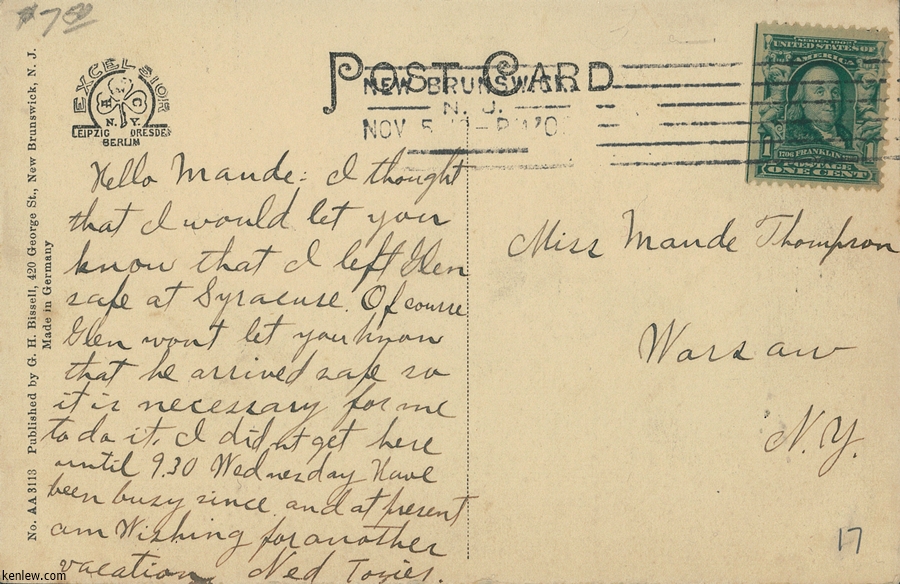 $7.50
No. AA 3113 Published by G. H. Bissell, 420 George St., New Brunswick, N. J.
Made in Germany
EXCELSIOR
N. Y.
LEIPZIG DRESDEN
BERLIN
POST CARD
NEW BRUNSWICK
N. J.
NOV 5
SERIES 1902
UNITED STATES OF
AMERICA
1706 FRANKLIN 1790
POSTAGE
1 ONE CENT 1
Hello Maude: I thought
that I would let you
know that I left Glen
safe at Syracuse. Of course
Glen wont let you know
that he arrived safe so
it is necessary for me
to do it. I did nt get here
until 9.30 Wednesday Have
been busy since and at present
am Wishing for another
vacation, Ned
Miss Maude Thompson
Warsaw
N.Y.
17
kenlew.com